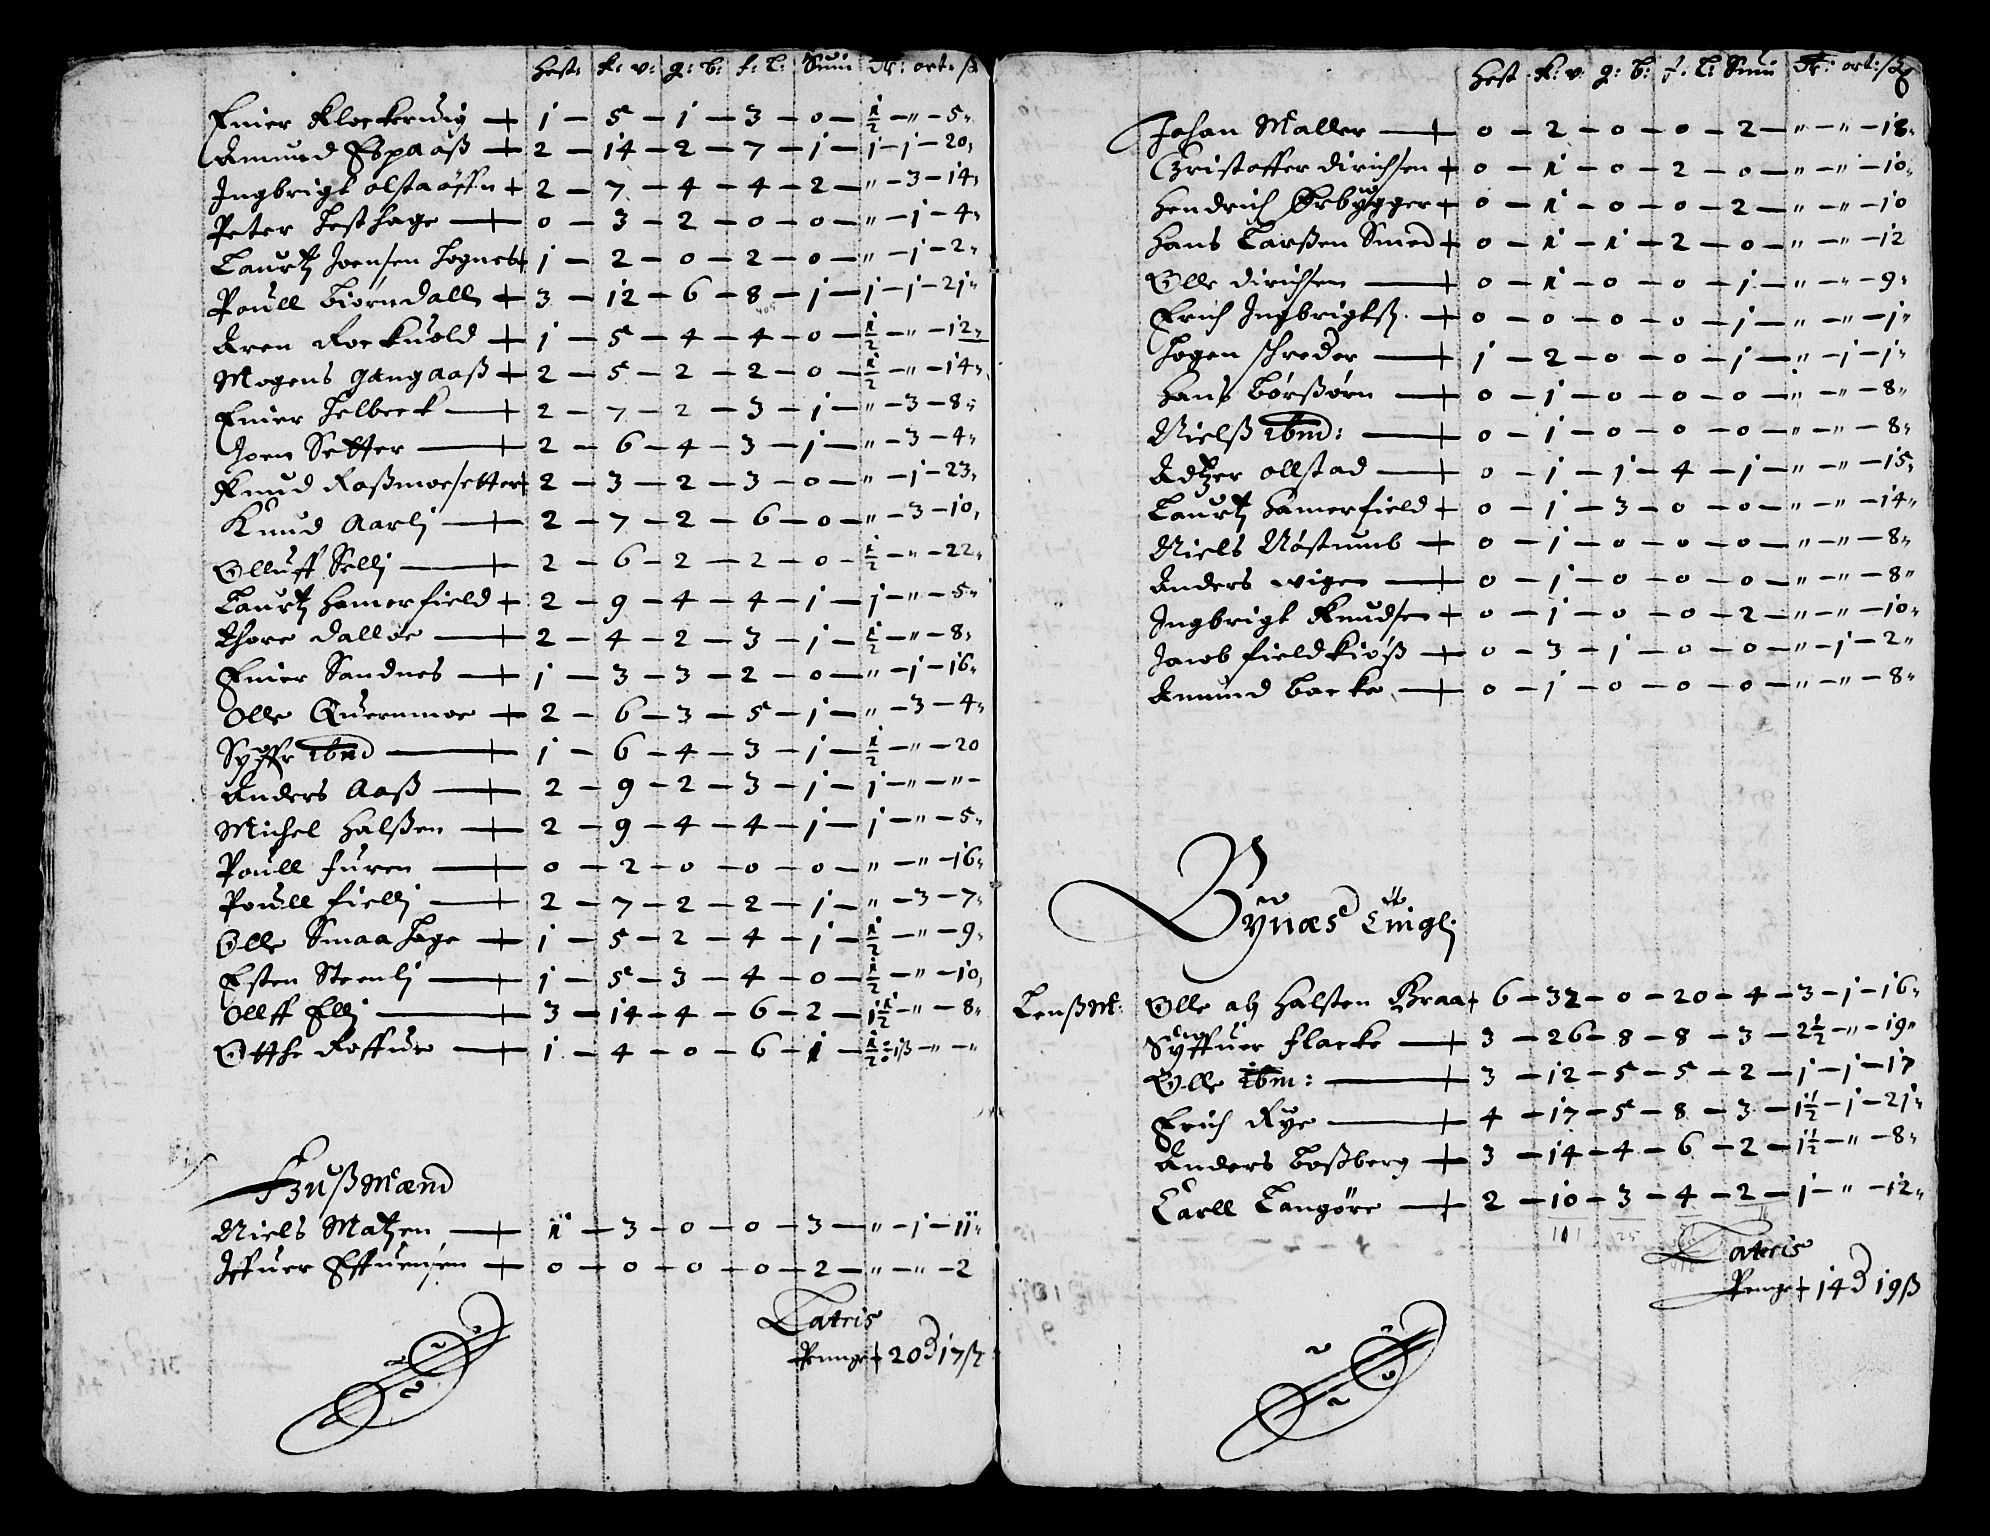 Hest: k: v: g: b: f: l: Suin dr: ort: ß
Einer Klockerwig + 1 – 5 – 1 – 3 – 0 – ½ – " – 5"
Amund Espaaß + 2 – 14 – 2 – 7 – 1 – 1 – 1 – 20"
Ingbrigt + 2 – 7 – 4 – 4 – 2 – " – 3 – 14"
Peter Hesthage + 0 – 3 – 2 – 0 – 0 – " – 1 – 4"
Laurtz Joensen + 1 – 2 – 0 – 2 – 0 – " – 1 – 2"
Pouell Biørndall + 3 – 12 – 6 – 8 – 1 – 1 – 1 – 21"
Aren Rockuold + 1 – 5 – 4 – 4 – 0 – ½ – " – 12"
Mogens Gangaaß + 2 – 5 – 2 – 2 – 0 – ½ – " – 14"
Einer Helbeck + 2 – 7 – 2 – 3 – 1 – " – 3 – 8"
Joen Setter + 2 – 6 – 4 – 3 – 1 – " – 3 – 4"
Knud Raßmoesetter + 2 – 3 – 2 – 3 – 0 – " – 1 – 23"
Knud Aarlj + 2 – 7 – 2 – 6 – 0 – " – 3 – 10"
Olluff Sellj + 2 – 6 – 2 – 2 – 0 – ½ – " – 22"
Laurtz Hamerfield + 2 – 9 – 4 – 4 – 1 – 1 – " – 5"
Thore Dalloe + 2 – 4 – 2 – 3 – 1 – ½ – " – 8"
Einer Sandnes + 1 – 3 – 3 – 2 – 0 – " – 1 – 16"
Olle Quernmoe + 2 – 6 – 3 – 5 – 1 – " – 3 – 4"
Syffr ibnd + 1 – 6 – 4 – 3 – 1 – ½ – " – 20
Anders Aaß + 2 – 9 – 2 – 3 – 1 – 1 – " – " –
Michel Halßen + 2 – 9 – 4 – 4 – 1 – 1 – " – 5"
Pouell Furen + 0 – 2 – 0 – 0 – 0 – " – " – 16"
Pouell Fiellj + 2 – 7 – 2 – 2 – 1 – " – 3 – 7"
Olle Smaahage + 1 – 5 – 2 – 4 – 1 – ½ – " – 9"
Esten Steenlj + 1 – 5 – 3 – 4 – 0 – ½ – " – 10"
Olleff Ellj + 3 – 14 – 4 – 6 – 2 – 1½ – " – 8"
Otthe + 1 – 4 – 0 – 6 – 1 – ½ – " – "
Hußmænd
Niels Matzen + 1 – 3 – 0 – 0 – 3 – " – 1 – 11"
Iffuer Effuensen + 0 – 0 – 0 – 0 – 2 – " – " – 2
Lateris
Penge + 20 d 17 ß
Hest k: v: g: b: f: l: Suin dr: ort: ß
8
Johan Maller + 0 – 2 – 0 – 0 – 2 – " – " – 18"
Christoffer Dirichsen + 0 – 1 – 0 – 2 – 0 – " – " – 10"
Hendrich Ørbygger + 0 – 1 – 0 – 0 – 2 – " – " – 10
Hans Larßen Smed + 0 – 1 – 1 – 2 – 0 – " – " – 12
Olle Dirichsen + 0 – 1 – 0 – 0 – 1 – " – " – 9"
Erich Ingbrigtß: + 0 – 0 – 0 – 0 – 1 – " – " – 1"
Hogen Schreder + 1 – 2 – 0 – 0 – 1 – " – 1 – 1"
Hans Børßørn + 0 – 1 – 0 – 0 – 0 – " – " – 8"
Nielß ibmd: + 0 – 1 – 0 – 0 – 0 – " – " – 8"
Adtzer Ollstad + 0 – 1 – 1 – 4 – 1 – " – " – 15"
Laurtz Hamerfield + 0 – 1 – 3 – 0 – 0 – " – " – 14"
Niels Nøstumb + 0 – 1 – 0 – 0 – 0 – " – " – 8"
Anders Wigen + 0 – 1 – 0 – 0 – 0 – " – " – 8"
Ingbrigt Knudsen + 0 – 1 – 0 – 0 – 2 – " – " – 10"
Jacob Fieldkiøß + 0 – 3 – 1 – 0 – 0 – " – 1 – 2"
Amund Backe + 0 – 1 – 0 – 0 – 0 – " – " – 8"
Bynæs Tinglj
LenßM: Olle Halsten Braa + 6 – 32 – 0 – 20 – 4 – 3 – 1 – 16"
Syffuer Flacke + 3 – 26 – 8 – 8 – 3 – 2½ – " – 19"
Olle ibm: + 3 – 12 – 5 – 5 – 2 – 1 – 1 – 17
Erich Rye + 4 – 17 – 5 – 8 – 3 – 1½ – 1 – 21"
Anders Loßberg + 3 – 14 – 4 – 6 – 2 – 1½ – " – 8"
Carll Langøre + 2 – 10 – 3 – 4 – 2 – 1 – " – 12"
111 25
Lateris
Penge + 14 d 19 ß